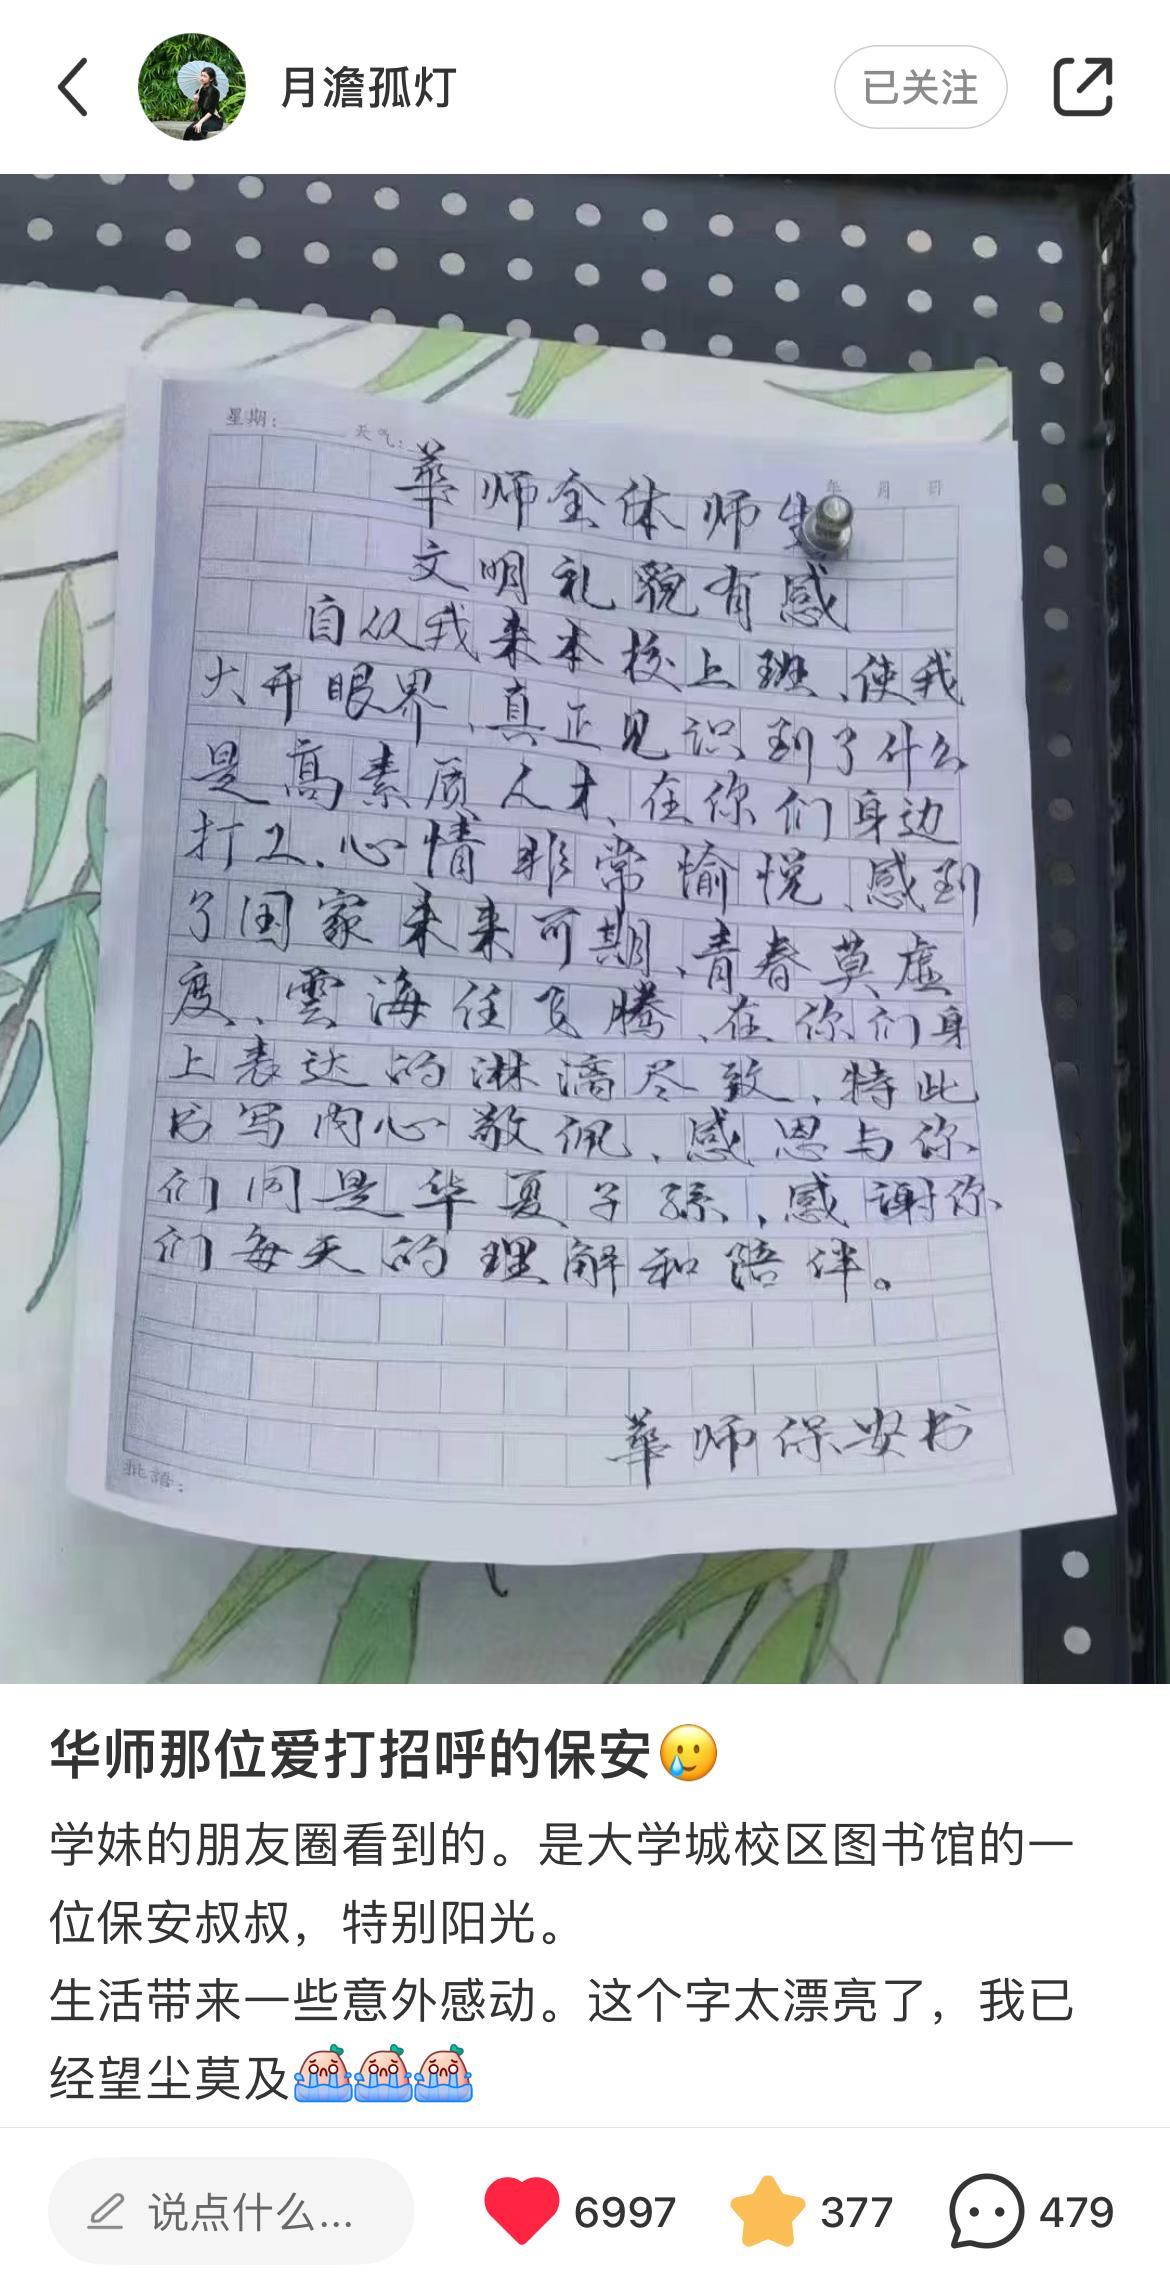 月澹孤灯
已关注
星期：
天气：
年 月 日
華师全体师生
文明礼貌有感
自从我来本校上班、使我
大开眼界、真正见识到了什么
是高素质人才、在你们身边
打工、心情非常愉悦、感到
了国家未来可期、青春莫虚
度、雲海任飞腾、在你们身
上表达的淋漓尽致、特此
书写内心敬佩、感恩与你
们同是华夏子孫、感谢你
们每天的理解和陪伴。
華师保安书
批語：
华师那位爱打招呼的保安🥲
学妹的朋友圈看到的。是大学城校区图书馆的一
位保安叔叔，特别阳光。
生活带来一些意外感动。这个字太漂亮了，我已
经望尘莫及
说点什么...
6997
377
479